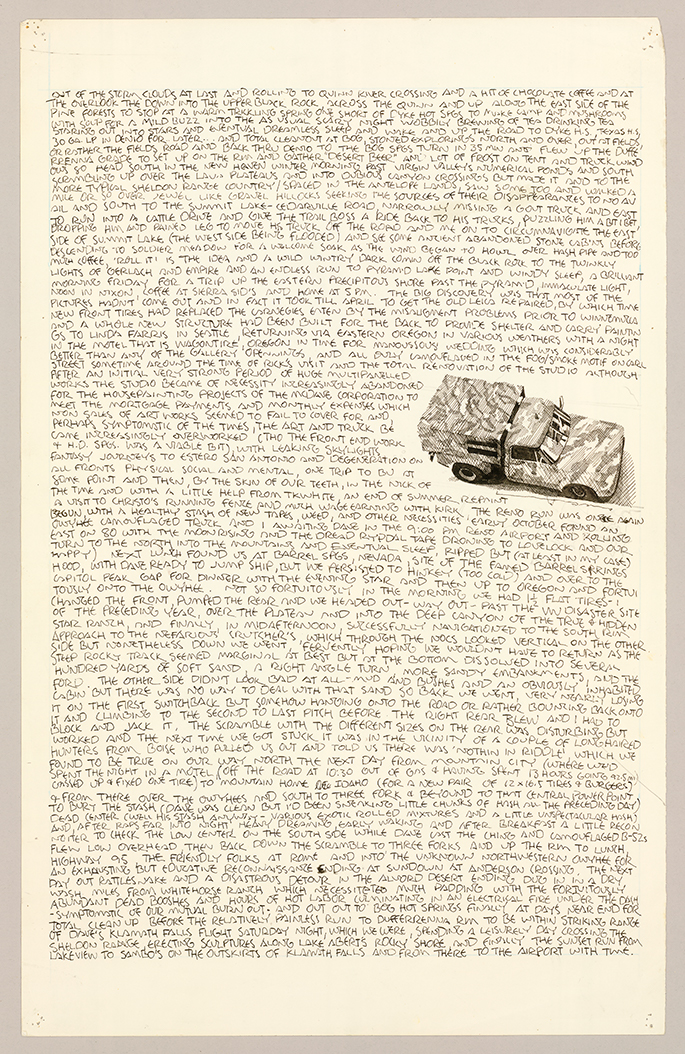 OUT OF THE STORM CLOUDS AT LAST AND ROLLING TO QUINN RIVER CROSSING AND A HIT OF CHOCOLATE COFFEE AND AT
THE OVERLOOK THE DOWN INTO THE UPPER BLACK ROCK, ACROSS THE QUINN AND UP ALONG THE EAST SIDE OF THE
PINE FORESTS TO STOP AT A WARM TRICKLING SPRING ONE SHORT OF DYKE HOT SPGS TO MAKE CAMP AND MUSHROOMS
WITH SOUP FOR A MILD BUZZ INTO THE AS USUAL SCARY NIGHT WOBBLIN' GREENING OF TEA DRINKING TEA
STARING OUT INTO STARS AND EVENTUAL DREAMLESS SLEEP AND WAKE AND UP THE ROAD TO DYKE H.S, TEXAS H.S,
30 GA. LP IN DENIO FOR LATER... AND TOTAL CLEANOUT AT BOG. STONED EXPLORINGS NORTH AND OVER, OUT AT FIELDS,
OR RATHER THE FIELDS ROAD AND BACK THRU DENIO TO THE BOG SPGS TURN IN 35 MIN AND FLEW UP THE DUFF-
ERRENNA GRADE TO SET UP ON THE RIM AND GATHER "DESERT BEER" AND LOT OF FROST ON TENT AND TRUCK WIND
OWS SO HEAD SOUTH IN THE NEW HEAVEN WINTER MORNING PAST VIRGIN VALLEY'S NUMERICAL PONDS AND SOUTH
SCRAMBLING UP OVER THE LAVA PLATEAUS AND INTO DUBIOUS CANYON CROSSINGS BUT MADE IT AND TO THE
MORE TYPICAL SHELDON RANGE COUNTRY / SPACED IN THE ANTELOPE LANDS, SAW SOME TOO AND WALKED A
MILE OR SO OVER JEWEL LIKE GRAVEL HILLOCKS SEEKING THE SOURCES OF THEIR DISAPPEARANCES TO NO AV
AIL AND SOUTH TO THE SUMMIT LAKE-CEDARVILLE ROAD, NARROWLY MISSING A GOV'T TRUCK AND EAST
TO RUN INTO A CATTLE DRIVE AND GIVE THE TRAIL BOSS A RIDE BACK TO HIS TRUCKS, PUZZLING HIM A BIT I BET,
DROPPING HIM AND PAINED LEG TO MOVE HIS TRUCK OFF THE ROAD AND ME ON TO CIRCUMNAVIGATE THE EAST
SIDE OF SUMMIT LAKE (THE WEST SIDE BEING FLOODED) AND SEE SOME ANCIENT ABANDONED STONE CABINS BEFORE
DESCENDING TO SOLDIER MEADOW FOR A WELCOME SOAK AS THE WIND BEGAN TO HOWL OVER HASH PIPE AND TOO
MUCH COFFEE, 'ROLL IT!' IS THE IDEA AND A WILD WINTRY DARK COMIN OFF THE BLACK ROK TO THE TWINKLY
LIGHTS OF GERLACH AND EMPIRE AND AN ENDLESS RUN TO PYRAMID LAKE POINT AND WINDY SLEEP, A BRILLIANT
MORNING FRIDAY FOR A TRIP UP THE EASTERN PRECIPITOUS SHORE PAST THE PYRAMID, IMMACULATE LIGHT,
NOON IN NIXON, COFFEE AT SIERRA SID'S AND HOME AT 5 PM. THE BIG DISCOVERY WAS THAT MOST OF THE
PICTURES HADN'T COME OUT AND IN FACT IT TOOK TILL APRIL TO GET THE OLD LEICA REPAIRED, BY WHICH TIME
NEW FRONT TIRES HAD REPLACED THE CARNEGIES EATEN BY THE MISALIGMENT PROBLEMS PRIOR TO WINNEMUCCA
AND A WHOLE NEW STRUCTURE HAD BEEN BUILT FOR THE BACK TO PROVIDE SHELTER AND CARRY PAINTIN
GS TO LINDA FARRIS IN SEATTLE RETURNING VIA EASTERN OREGON IN VARIOUS WEATHERS WITH A NIGHT
IN THE MOTEL THAT IS WAGONTIRE, OREGON IN TIME FOR MANOUSSUS' WEDDING WHICH WAS CONSIDERABLY
BETTER THAN ANY OF THE GALLERY 'OPENNINGS, AND ALL DULY CAMOUFLAUED IN THE FOG/SMOKE MOTIF ON ARL
STREET SOMETIME AROUND THE TIME OF RICK'S VISIT AND THE TOTAL RENOVATION OF THE STUDIO ALTHOUGH
AFTER AN INITIAL VERY STRONG PERIOD OF HUGE MULTIPANELLED
WORKS THE STUDIO BECAME OF NECESSITY INCREASINGLY ABANDONED
FOR THE HOUSEPAINTING PROJECTS OF THE MCDAVE CORPORATION TO
MEET THE MORTGAGE PAYMENTS AND MONTHLY EXPENSES WHICH
NON SALES OF ART WORKS SEEMED TO FAIL TO COVER FOR AND
PERHAPS SYMPTOMATIC OF THE TIMES, THE ART AND TRUCK BE
CAME INCREASINGLY OVERWORKED (THO THE FRONT END WORK
& H.D. SPGS. WAS A VIABLE BIT), WITH LEAKING SKYLIGHTS
FANTASY JOURNEYS TO ESTERO SAN ANTONIO AND DEGENERATION ON
ALL FRONTS PHYSICAL SOCIAL AND MENTAL, ONE TRIP TO BU AT
SOME POINT AND THEN, BY THE SKIN OF OUR TEETH, IN THE NICK OF
THE TIME AND WITH A LITTLE HELP FROM T.K.WHITE, AN END OF SUMMER REPRINT
A VISIT TO CHRISTO'S RUNNING FENCE AND MUCH WAGE EARNING WITH KIRK THE RENO RUN WAS ONCE AGAIN
BEGUN, WITH A HEALTHY STASH OF NEW TAPES, WEED, AND OTHER NECESSITIES EARLY OCTOBER FOUND AN
OWYHEE CAMOUFLAGED TRUCK AND I AWAITING DAVE IN THE 9:00 PM RENO AIRPORT AND ROLLING
EAST ON 80 WITH THE MOONRISING AND THE DREAD RYPDAL TAPE DRONING TO LOVELOCK AND OUR
TURN TO THE NORTH INTO THE MOUNTAINS AND EVENTUAL SLEEP, RIPPED BUT (AT LEAST IN MY CASE)
HAPPY) NEXT LUNCH FOUND US AT BARREL SPGS, NEVADA, SITE OF THE FAMED BARREL SPRINGS
HOOD, WITH DAVE READY TO JUMP SHIP, BUT WE PERSISTED TO HINKEY (TOO COLD) AND OVER TO THE
CAPITOL PEAK GAP FOR DINNER WITH THE EVENING STAR AND THEN UP TO OREGON AND FORTUI
TOUSLY ONTO THE OWYHEE. NOT SO FORTUITOUSLY IN THE MORNING WE HAD 2 FLAT TIRES- I
CHANGED THE FRONT, PUMPED THE REAR AND WE HEADED OUT- WAY OUT - PAST THE VW DISASTER SITE
OF THE PRECEDING YEAR, OVER THE PLATEAU AND INTO THE DEEP CANYON OF THE TRUE & HIDDEN
STAR RANCH, AND FINALLY, IN MIDAFTERNOON, SUCCESSFULLY NAVIGATIONED TO THE SOUTH RIM
APPROACH TO THE NEFARIOUS 'CRUTCHER'S' WHICH THROUGH THE NOCS LOOKED VERTICAL ON THE OTHER
SIDE BUT NONETHELESS DOWN WE WENT FERVENTLY HOPING WE WOULDN'T HAVE TO RETURN AS THE
STEEP ROCKY TRACK SEEMED MARGINAL AT BEST BUT AT THE BOTTOM DISSOLVED INTO SEVERAL
HUNDRED YARDS OF SOFT SAND, A RIGHT ANGLE TURN, MORE SANDY EMBANKMENTS, AND THE
FORD. THE OTHER SIDE DIDN'T LOOK BAD AT ALL - MUD AND BUSHES (AND AN OBVIOUSLY INHABITED
CABIN) BUT THERE WAS NO WAY TO DEAL WITH THAT SAND SO BACK WE WENT, VERY NEARLY LOSING
IT ON THE FIRST SWITCHBACK BUT SOMEHOW HANGING ONTO THE ROAD OR RATHER BOUNCING BACK ONTO
IT AND CLIMBING TO THE SECOND TO LAST PITCH BEFORE THE RIGHT REAR BLEW AND I HAD TO
BLOCK AND JACK IT, THE SCRAMBLE WITH THE DIFFERENT SIZES ON THE REAR WAS DISTURBING BUT
WORKED AND THE NEXT TIME WE GOT STUCK IT WAS IN THE VICINITY OF A COUPLE OF LONGHAIRED
HUNTERS FROM BOISE WHO PULLED US OUT AND TOLD US THERE WAS 'NOTHIN IN RIDDLE' WHICH WE
FOUND TO BE TRUE ON OUR WAY NORTH THE NEXT DAY FROM MOUNTAIN CITY (WHERE WE'D
SPENT THE NIGHT IN A MOTEL (OFF THE ROAD AT 10:30 OUT OF GAS & HAVING SPENT 13 HOURS GOING 42.5 mi)
GASSED UP & FIXED ONE TIRE) TO MOUNTAIN HOME IDAHO (FOR A NEW PAIR OF 12 X 16.5 TIRES & BURGERS)
& FROM THERE OVER THE OWYHEES AND SOUTH TO THREE FORK & BEYOND TO THAT CENTRAL POWER POINT
TO BURY THE STASH (DAVE WAS CLEAN BUT I'D BEEN SNEAKING LITTLE CHUNKS OF HASH ALL THE PRECEDING DAY)
DEAD CENTER (WELL HIS STASH ANYWAY - VARIOUS EXOTIC ROLLED MIXTURES AND A LITTLE UNSPECTACULAR HASH)
AND, AFTER RAPS FAR INTO NIGHT, HEAVY DREAMING, EARLY WAKING AND AFTER BREAKFAST A LITTLE RECON
NOITER TO CHECK THE LOW CENTER ON THE SOUTH SIDE WHILE DAVE CAST THE CHING AND CAMOUFLAGED B-52s
FLEW LOW OVERHEAD, THEN BACK DOWN THE SCRAMBLE TO THREE FORKS AND UP THE RIM TO LUNCH,
HIGHWAY 95 THE FRIENDLY FOLKS AT ROME AND INTO THE UNKNOWN NORTHWESTERN OWYHEE FOR
AN EXHAUSTING BUT EDUCATIVE RECONNAISSANCE ENDING AT SUNDOWN AT ANDERSON CROSSING, THE NEXT
DAY OUT RATTLESNAKE AND A DISASTROUS DETOUR IN THE ALVORD DESERT ENDING DUG IN IN A DRY
WASH MILES FROM WHITEHORSE RANCH WHICH NECESSITATED MUCH PADDING WITH THE FORTUITOUSLY
ABUNDANT DEAD BOOSHES AND HOURS OF HOT LABOR CULMINATING IN AN ELECTRICAL FIRE UNDER THE DASH
-SYMPTOMATIC OF OUR MUTUAL BURN OUT- AND OUT OUT TO BOG HOT SPRINGS FINALLY AT DAYS NEAR END FOR
TOTAL CLEAN UP BEFORE THE RELATIVELY PAINLESS RUN TO DUFFERRENNA RIM TO BE WITHIN STRIKING RANGE
OF DAVE'S KLAMATH FALLS FLIGHT SATURDAY NIGHT, WHICH WE WERE, SPENDING A LEISURELY DAY CROSSING THE
SHELDON RANGE, ERECTING SCULPTURES ALONG LAKE ABERTS ROCKY SHORE AND FINALLY THE SUNSET RUN FROM
LAKEVIEW TO SAMBO'S ON THE OUTSKIRTS OF KLAMATH FALLS AND FROM THERE TO THE AIRPORT WITH TIME.